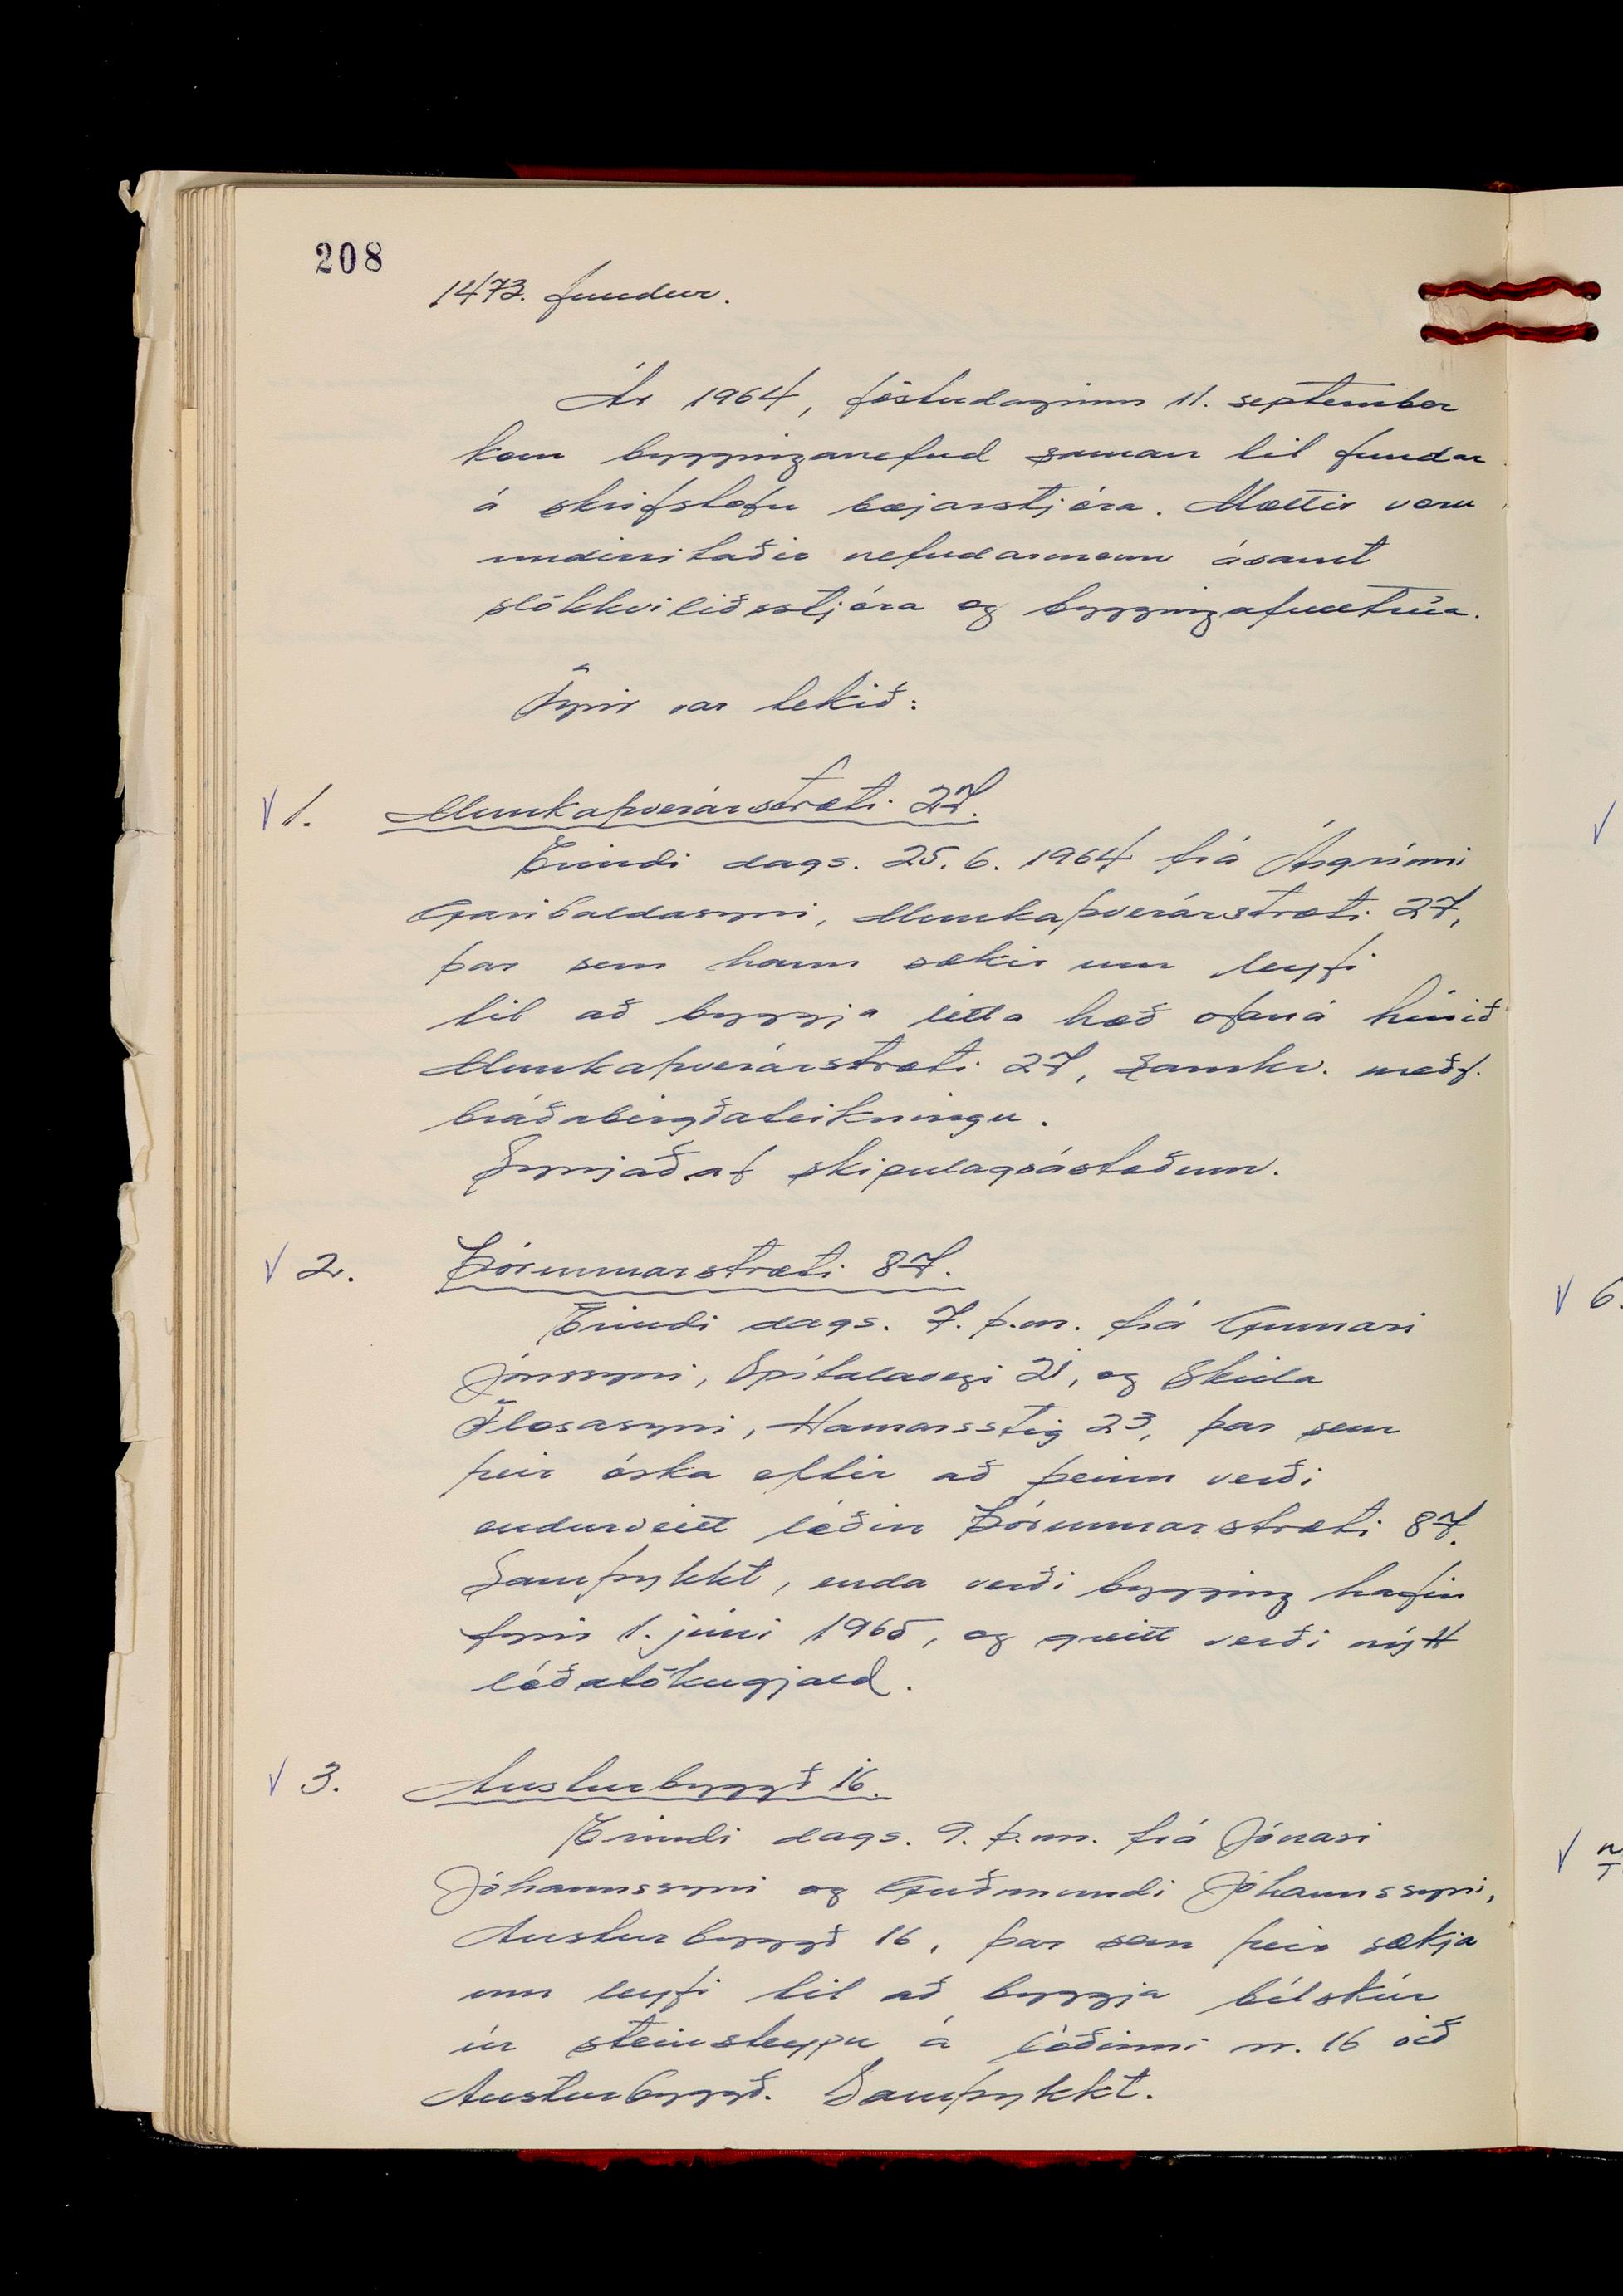 208
1473. fundur.
Ár 1964, föstudaginn 11. september
kom bygginganefnd saman til fundar
á skrifstofu bæjarstjóra. Mættir voru
undirritaðir nefndarmenn ásamt
slökkviliðsstjóra og byggingafulltrúa.
Fyrir var tekið:
√ 1. Munkaþverárstræti 27.
Erindi dags. 25.6. 1964 frá Ásgrími
Garibaldasyni, Munkaþverárstræti 27,
þar sem hann sækir um leyfi
til að byggja létta hæð ofaná húsið
Munkaþverárstræti 27, samkv. meðf.
bráðabirgðateikningu.
Synjað af skipulagsástæðum.
√ 2. Þórunnarstræti 87.
Erindi dags. 7. þ.m. frá Gunnari
Jónssyni, Spítalavegi 21, og Skúla
Flosasyni, Hamarsstíg 23, þar sem
þeir óska eftir að þeim verði
endurveitt lóðin Þórunnarstræti 87.
Samþykkt, enda verði bygging hafin
fyrir 1. júní 1965, og greitt verði nýtt
lóðatökugjald.
√ 3. Austurbyggð 16.
Erindi dags. 9. þ.m. frá Jónasi
Jóhannssyni og Guðmundi Jóhannssyni,
Austurbyggð 16, þar sem þeir sækja
um leyfi til að byggja bílskúr
úr steinsteypu á lóðinni nr. 16 við
Austurbyggð. Samþykkt.
√
√ 6.
√